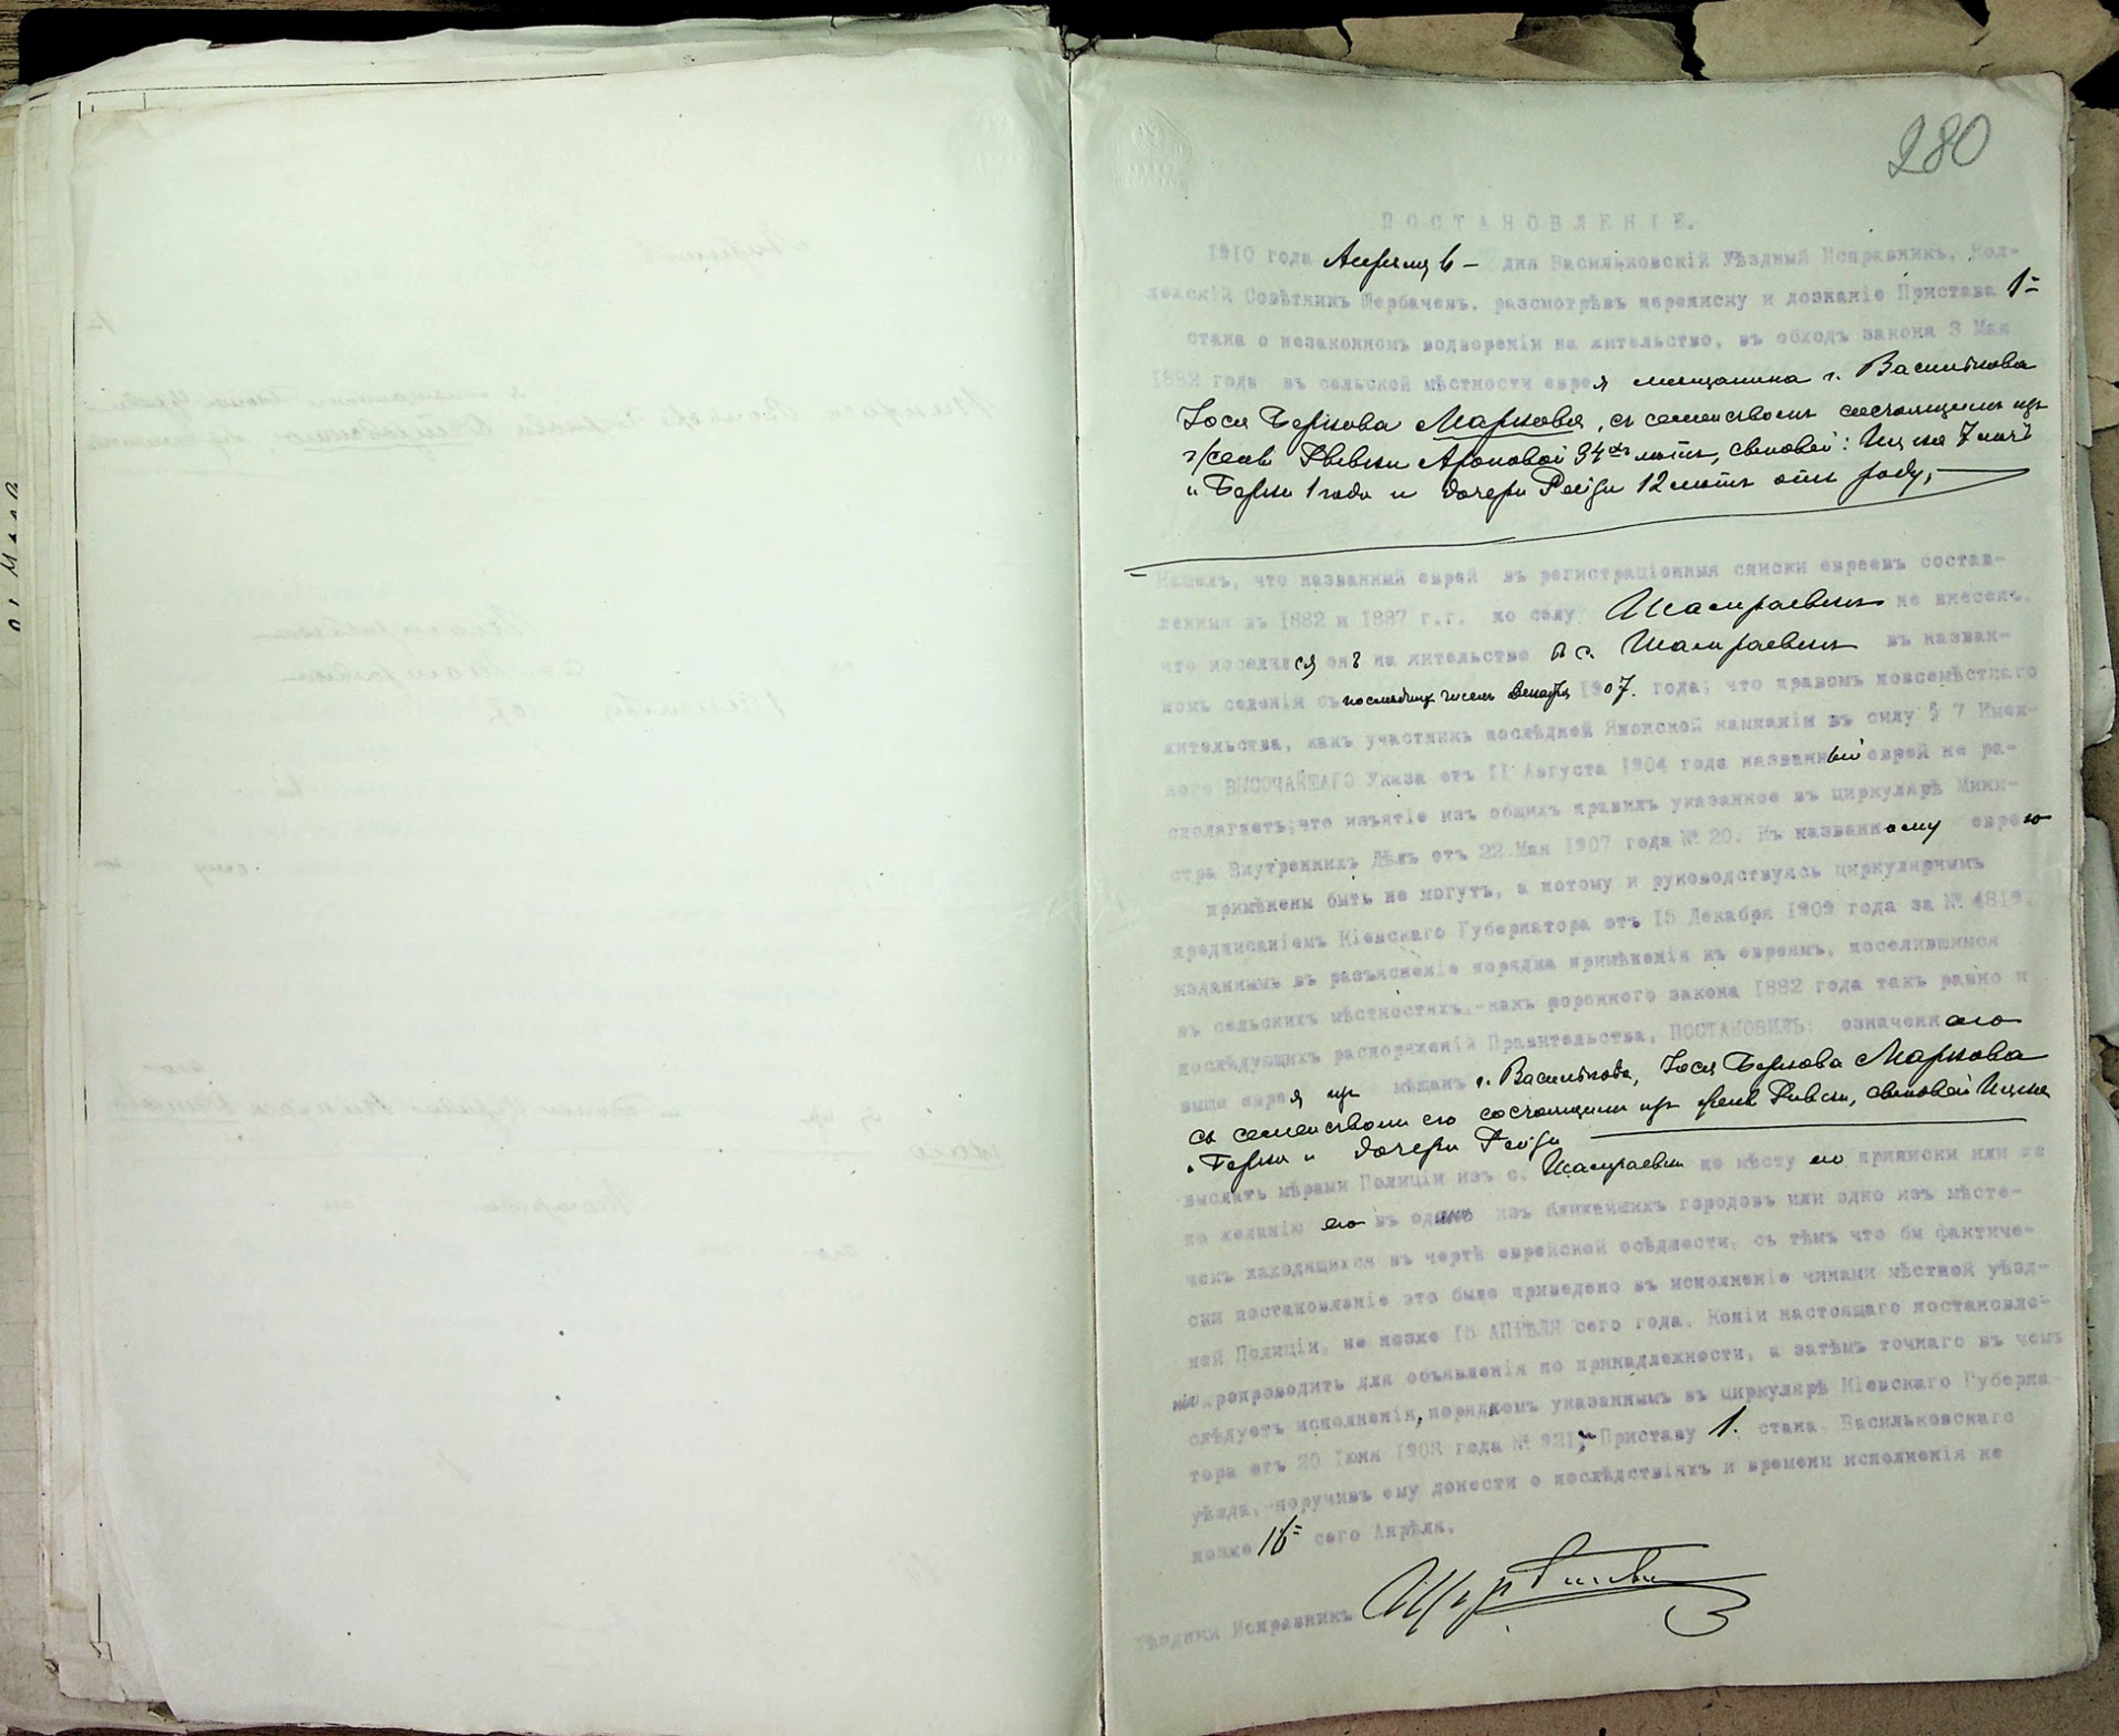 280
ПОСТАНОВЛЕНІЕ.
1910 года Апрѣля 6 - дня Васильковскій Уѣздный Исправникъ, Кол-
лежскій Совѣтникъ Щербачевъ, разсмотрѣвъ переписку и дознаніе Пристава 1-
стана о незаконномъ водвореніи на жительство, въ обходъ закона 3 Мая
1882 года въ сельской мѣстности еврея мѣщанина г. Василькова
Іося Беркова Маркова, съ семействомъ состоящимъ изъ
жены Ривки Ароновой 34 лѣтъ, сыновей: Ицка 7 лѣтъ
и Берки 1 года и дочери Рейзи 12 лѣтъ отъ роду,
Нашелъ, что названный еврей въ регистраціонныя списки евреевъ состав-
ленныя въ 1882 и 1887 г.г. по селу Шамраевкѣ не внесенъ,
что поселился онъ на жительство въ с. Шамраевкѣ въ назван-
номъ селеніи съ послѣднихъ чиселъ Декабря 1907. года; что правомъ повсемѣстнаго
жительства, какъ участникъ послѣдней Японской кампаніи въ силу § 7 Имен-
ного ВЫСОЧАЙШАГО Указа отъ 11 Августа 1904 года названный еврей не ра-
сполагаетъ; что изъятіе изъ общихъ правилъ указанное въ циркулярѣ Мини-
стра Внутреннихъ Дѣлъ отъ 22 Мая 1907 года № 20. Къ названному еврею
примѣнены быть не могутъ, а потому и руководствуясь циркулярнымъ
предписаніемъ Кіевскаго Губернатора отъ 15 Декабря 1909 года за № 4819,
изданнымъ въ разъясненіе порядка примѣненія къ евреямъ, поселившимся
въ сельскихъ мѣстностяхъ,-какъ коренного закона 1882 года такъ равно и
послѣдующихъ распоряженій Правительства, ПОСТАНОВИЛЪ: означеннаго
выше еврея изъ мѣщанъ г. Василькова, Іося Беркова Маркова
съ семействомъ его состоящимъ изъ жены Ривки, сыновей Ицка
и Берки и дочери Рейзи
выслать мѣрами Полиціи изъ с. Шамраевки по мѣсту его приписки или же
по желанію его въ одинъ изъ ближайшихъ городовъ или одно изъ мѣсте-
чекъ находящихся въ чертѣ еврейской осѣдлости, съ тѣмъ что бы фактиче-
ски постановленіе это было приведено въ исполненіе чинами мѣстной уѣзд-
ной Полиціи, не позже 15 АПРѢЛЯ сего года. Копіи настоящаго постановле-
нія препроводить для объявленія по принадлежности, а затѣмъ точнаго въ чемъ
слѣдуетъ исполненія, порядкомъ указаннымъ въ циркулярѣ Кіевскаго Губерна-
тора отъ 20 Іюня 1908 года № 921, Приставу 1. стана Васильковскаго
уѣзда, поручивъ ему донести о послѣдствіяхъ и времени исполненія не
позже 16 сего Апрѣля.
Уѣздный Исправникъ Щербачевъ